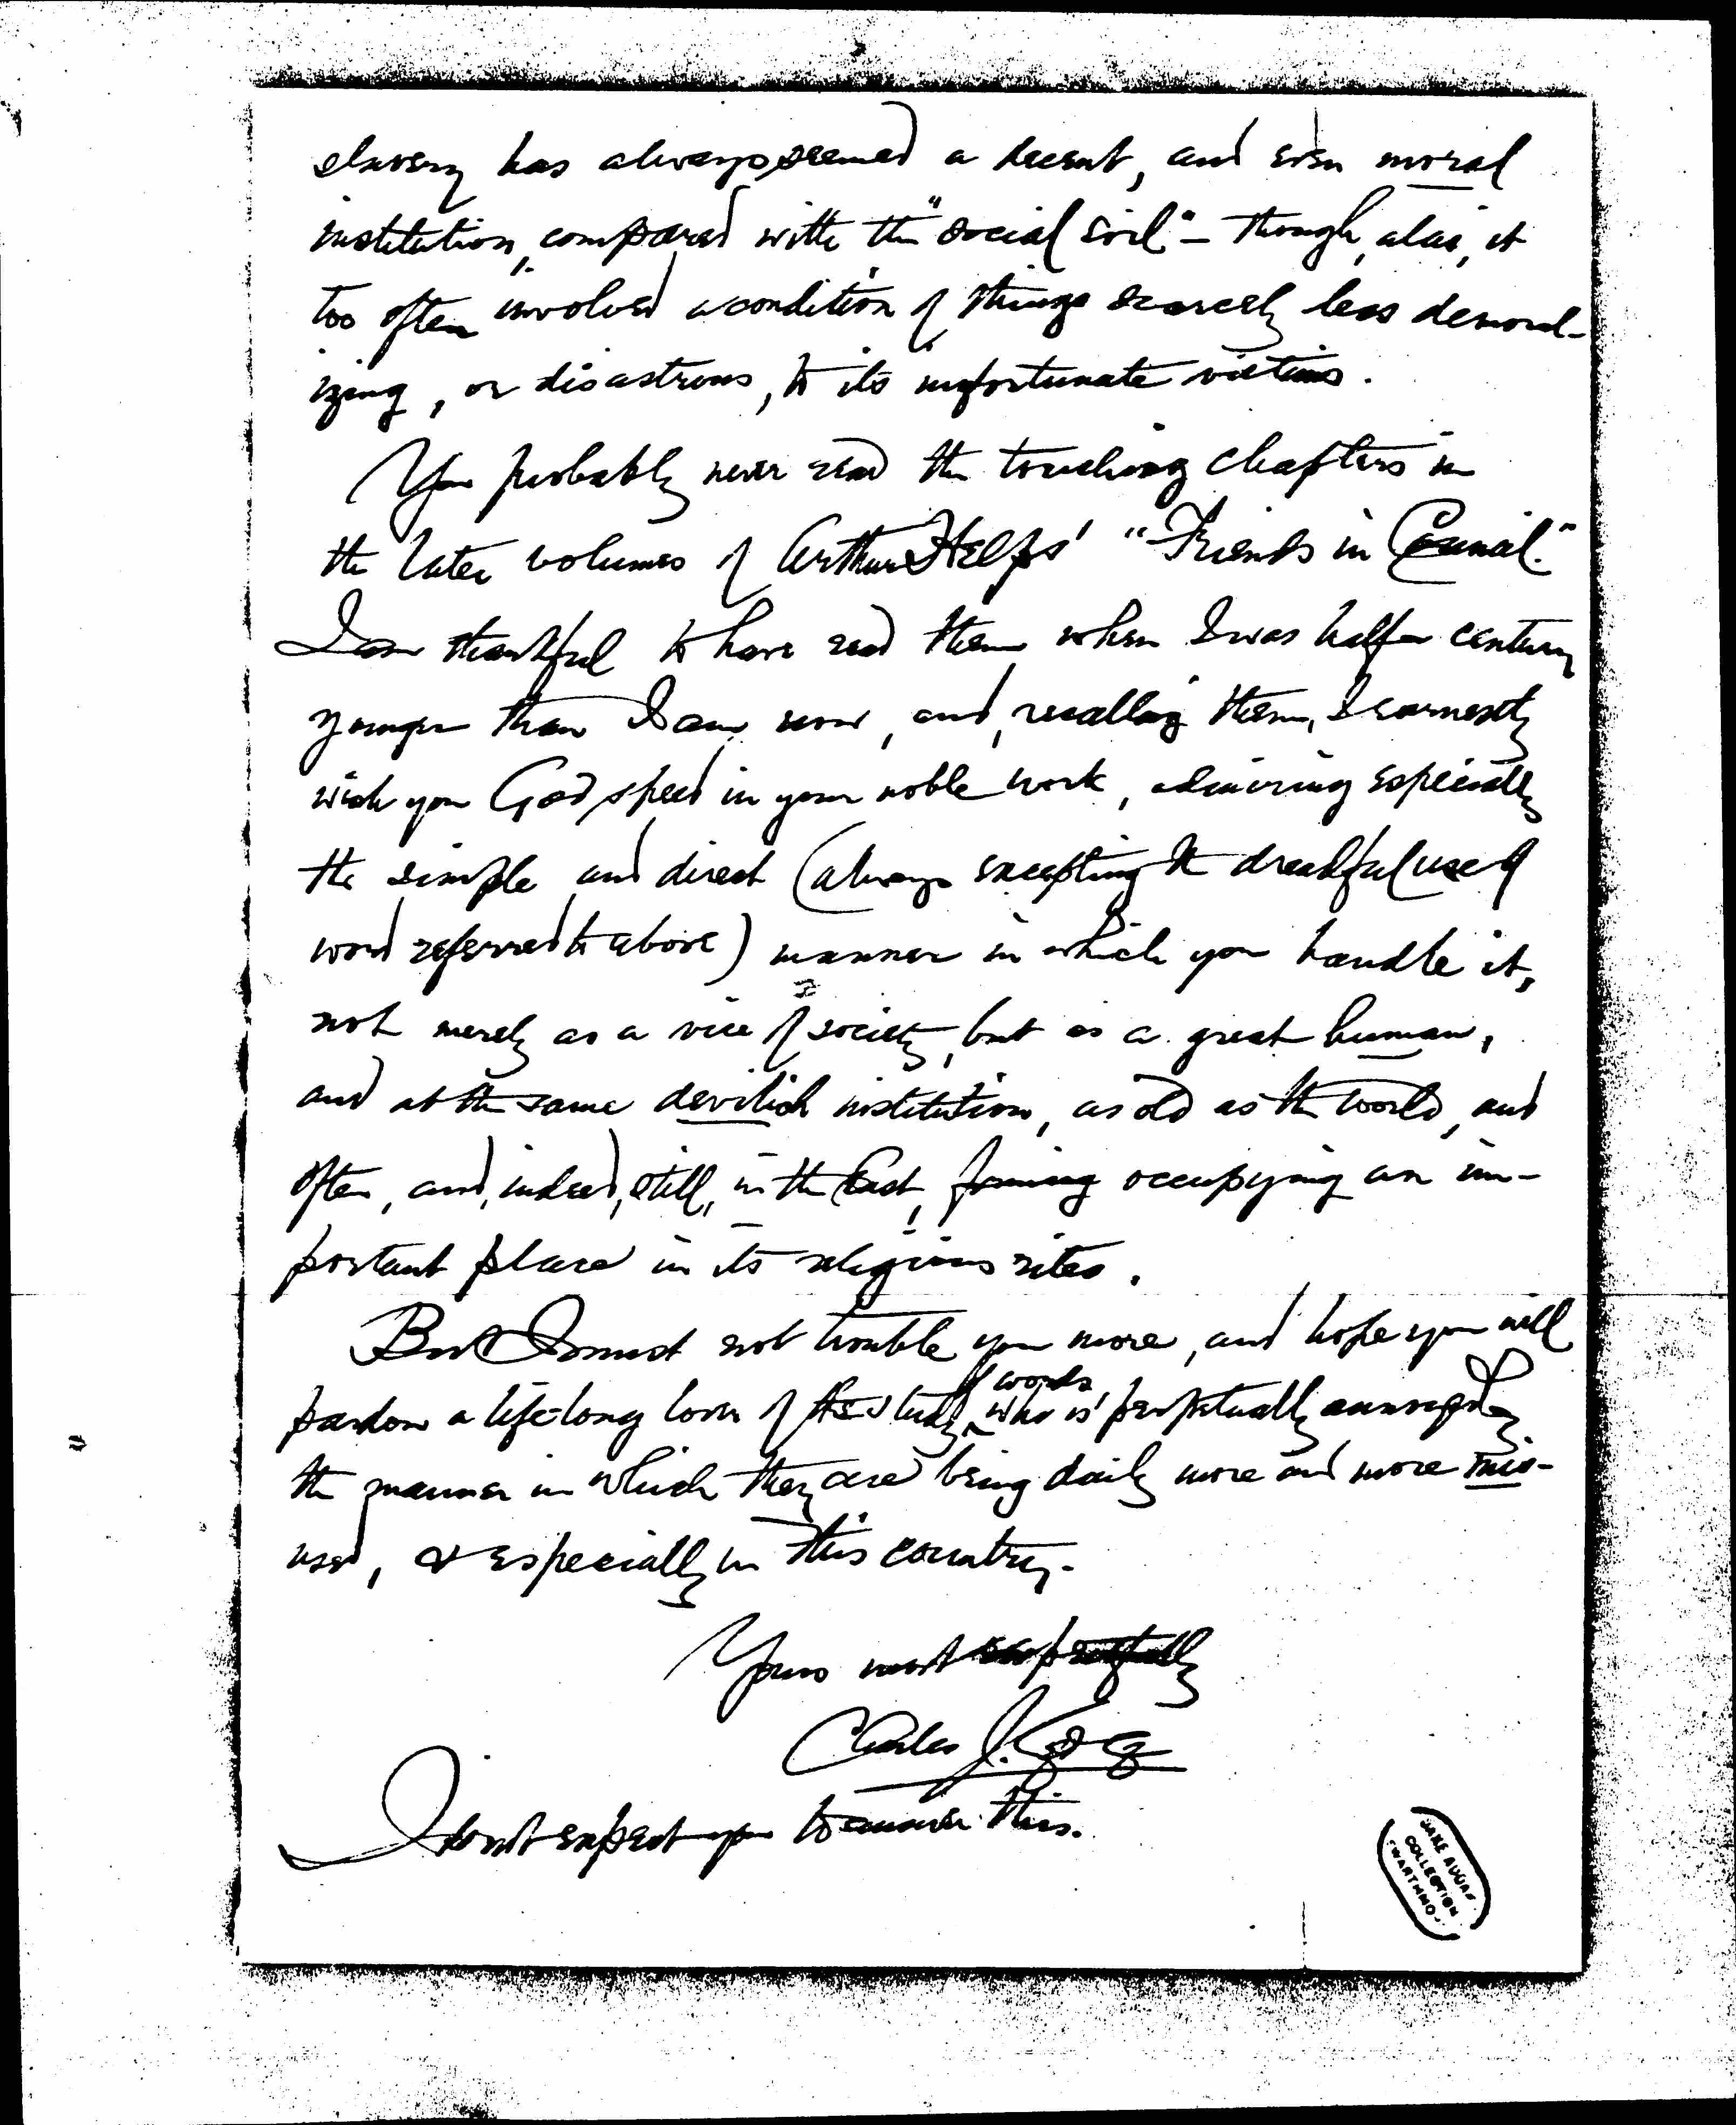 slavery has always seemed a decent, and even moral
institution, compared with the "social evil" – though, alas, it
too often involved a condition of things scarcely less demoral-
izing, or disastrous, to its unfortunate victims.
You probably never read the touching chapters in
the later volumes of Arthur Helps' "Friends in Council."
I am thankful to have read them when I was half a century
younger than I am now, and, recalling them, I earnestly
wish you God speed in your noble work, admiring especially
the simple and direct (always excepting the dreadful use of
word referred to above) manner in which you handle it,
not merely as a vice of society, but as a great human,
and at the same devilish institution, as old as the world, and
often, and, indeed, still, in the East, forming occupying an im-
portant place in its religious rites.
But I must not trouble you more, and hope you will
pardon a life-long lover of the study of words, who is perpetually annoyed by
the manner in which they are being daily more and more mis-
used, & especially in this country.
Yours most respectfully
Charles J.
I don't expect you to answer this.
JANE ADDAMS
COLLECTION
SWARTHMORE